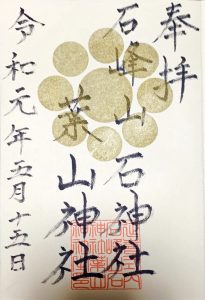 奉拝
石峰山石神社
葉山神社
令和元年五月十五日